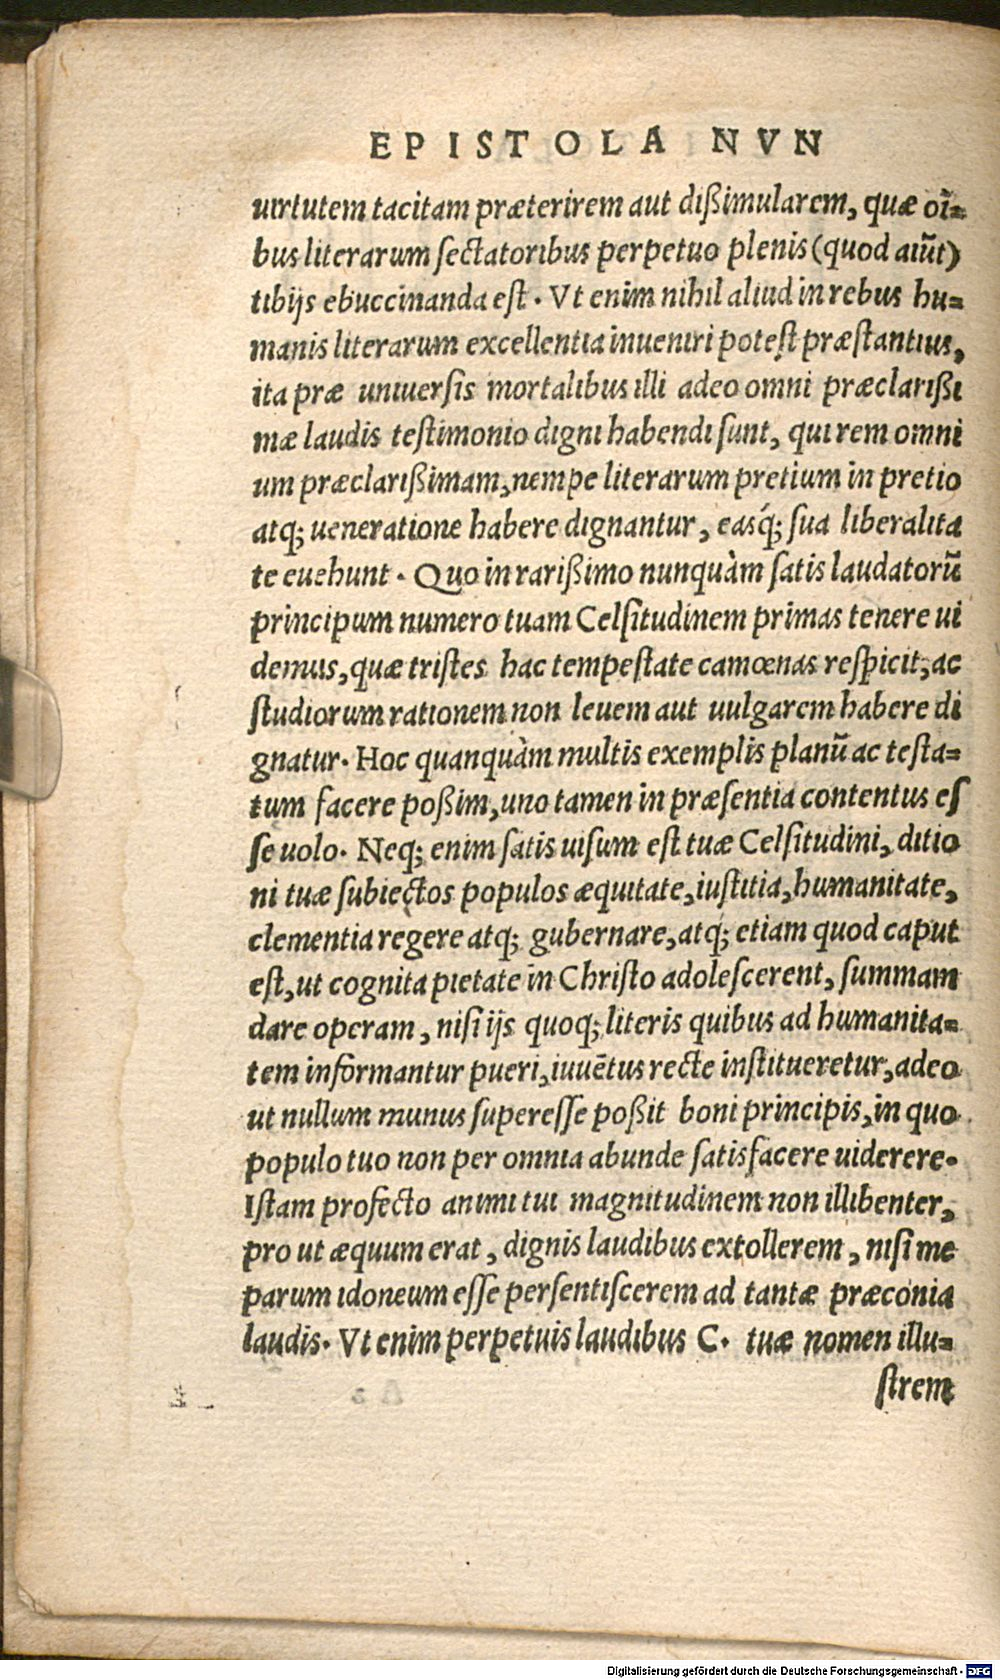 EPISTOLA NVN
uirtutem tacitam præterirem aut dißimularem, quæ oĩ=
bus literarum sectatoribus perpetuo plenis (quod aiũt)
tibijs ebuccinanda est. Vt enim nihil aliud in rebus hu=
manis literarum excellentia inueniri potest præstantius,
ita præ uniuersis mortalibus illi adeo omni præclarißi
mæ laudis testimonio digni habendi sunt, qui rem omni
um præclarißimam, nempe literarum pretium in pretio
atq; ueneratione habere dignantur, easq́; sua liberalita
te euehunt. Quo in rarißimo nunquàm satis laudatorũ
principum numero tuam Celsitudinem primas tenere ui
demus, quæ tristes hac tempestate camœnas respicit, ac
studiorum rationem non leuem aut uulgarem habere di
gnatur. Hoc quanquàm multis exemplis planũ ac testa=
tum facere poßim, uno tamen in præsentia contentus es
se uolo. Neq; enim satis uisum est tuæ Celsitudini, ditio
ni tuæ subiectos populos æquitate, iustitia, humanitate,
clementia regere atq; gubernare, atq; etiam quod caput
est, ut cognita pietate in Christo adolescerent, summam
dare operam, nisi ijs quoq; literis quibus ad humanita=
tem informantur pueri, iuuẽtus recte institueretur, adeo
ut nullum munus superesse poßit boni principis, in quo
populo tuo non per omnia abunde satisfacere uiderere.
Istam profecto animi tui magnitudinem non illibenter,
pro ut æquum erat, dignis laudibus extollerem, nisi me
parum idoneum esse persentiscerem ad tantæ præconia
laudis. Vt enim perpetuis laudibus C. tuæ nomen illu=
strem
Digitalisierung gefördert durch die Deutsche Forschungsgemeinschaft - DFG